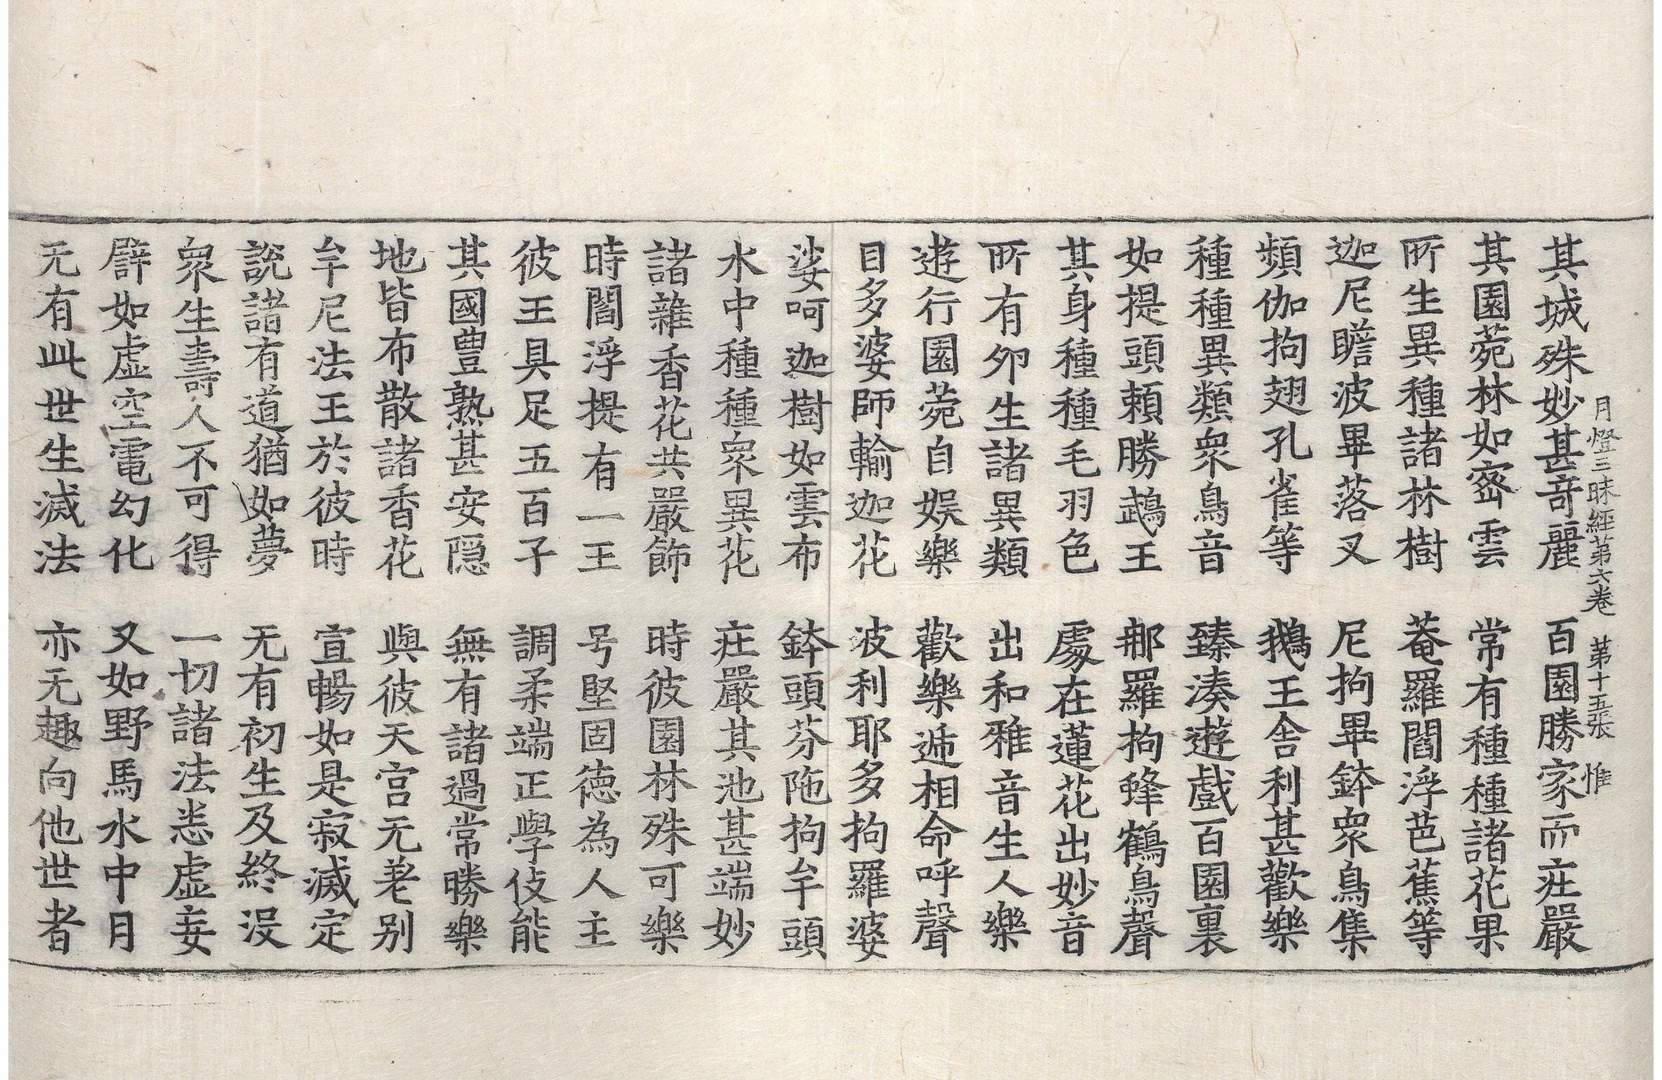 月燈三昧經第六卷　第十五張　惟
其城殊妙甚奇麗　百園勝家而庄嚴
其園菀林如密雲　常有種種諸花果
所生異種諸林樹　菴羅閻浮芭蕉等
迦尼瞻波畢落叉　尼拘畢鉢衆鳥集
頻伽拘翅孔雀等　鵝王舍利甚歡樂
種種異類衆鳥音　臻湊遊戲百園裏
如提頭頼勝鵡王　郍羅拘蜂鶴鳥聲
其身種種毛羽色　處在蓮花出妙音
所有卵生諸異類　出和雅音生人樂
遊行園菀自娛樂　歡樂遞相命呼聲
目多婆師輸迦花　波利耶多拘羅婆
娑呵迦樹如雲布　鉢頭芬陁拘牟頭
水中種種衆異花　庄嚴其池甚端妙
諸雜香花共嚴飾　時彼園林殊可樂
時閻浮提有一王　号堅固德為人主
彼王具足五百子　調柔端正學伎能
其國豊熟甚安隠　無有諸過常勝樂
地皆布散諸香花　與彼天宮无差别
牟尼法王於彼時　宣暢如是寂滅定
說諸有道猶如夢　无有初生及終没
衆生壽人不可得　一切諸法悉虛妄
譬如虛空電幻化　又如野馬水中月
无有此世生滅法　亦无趣向他世者